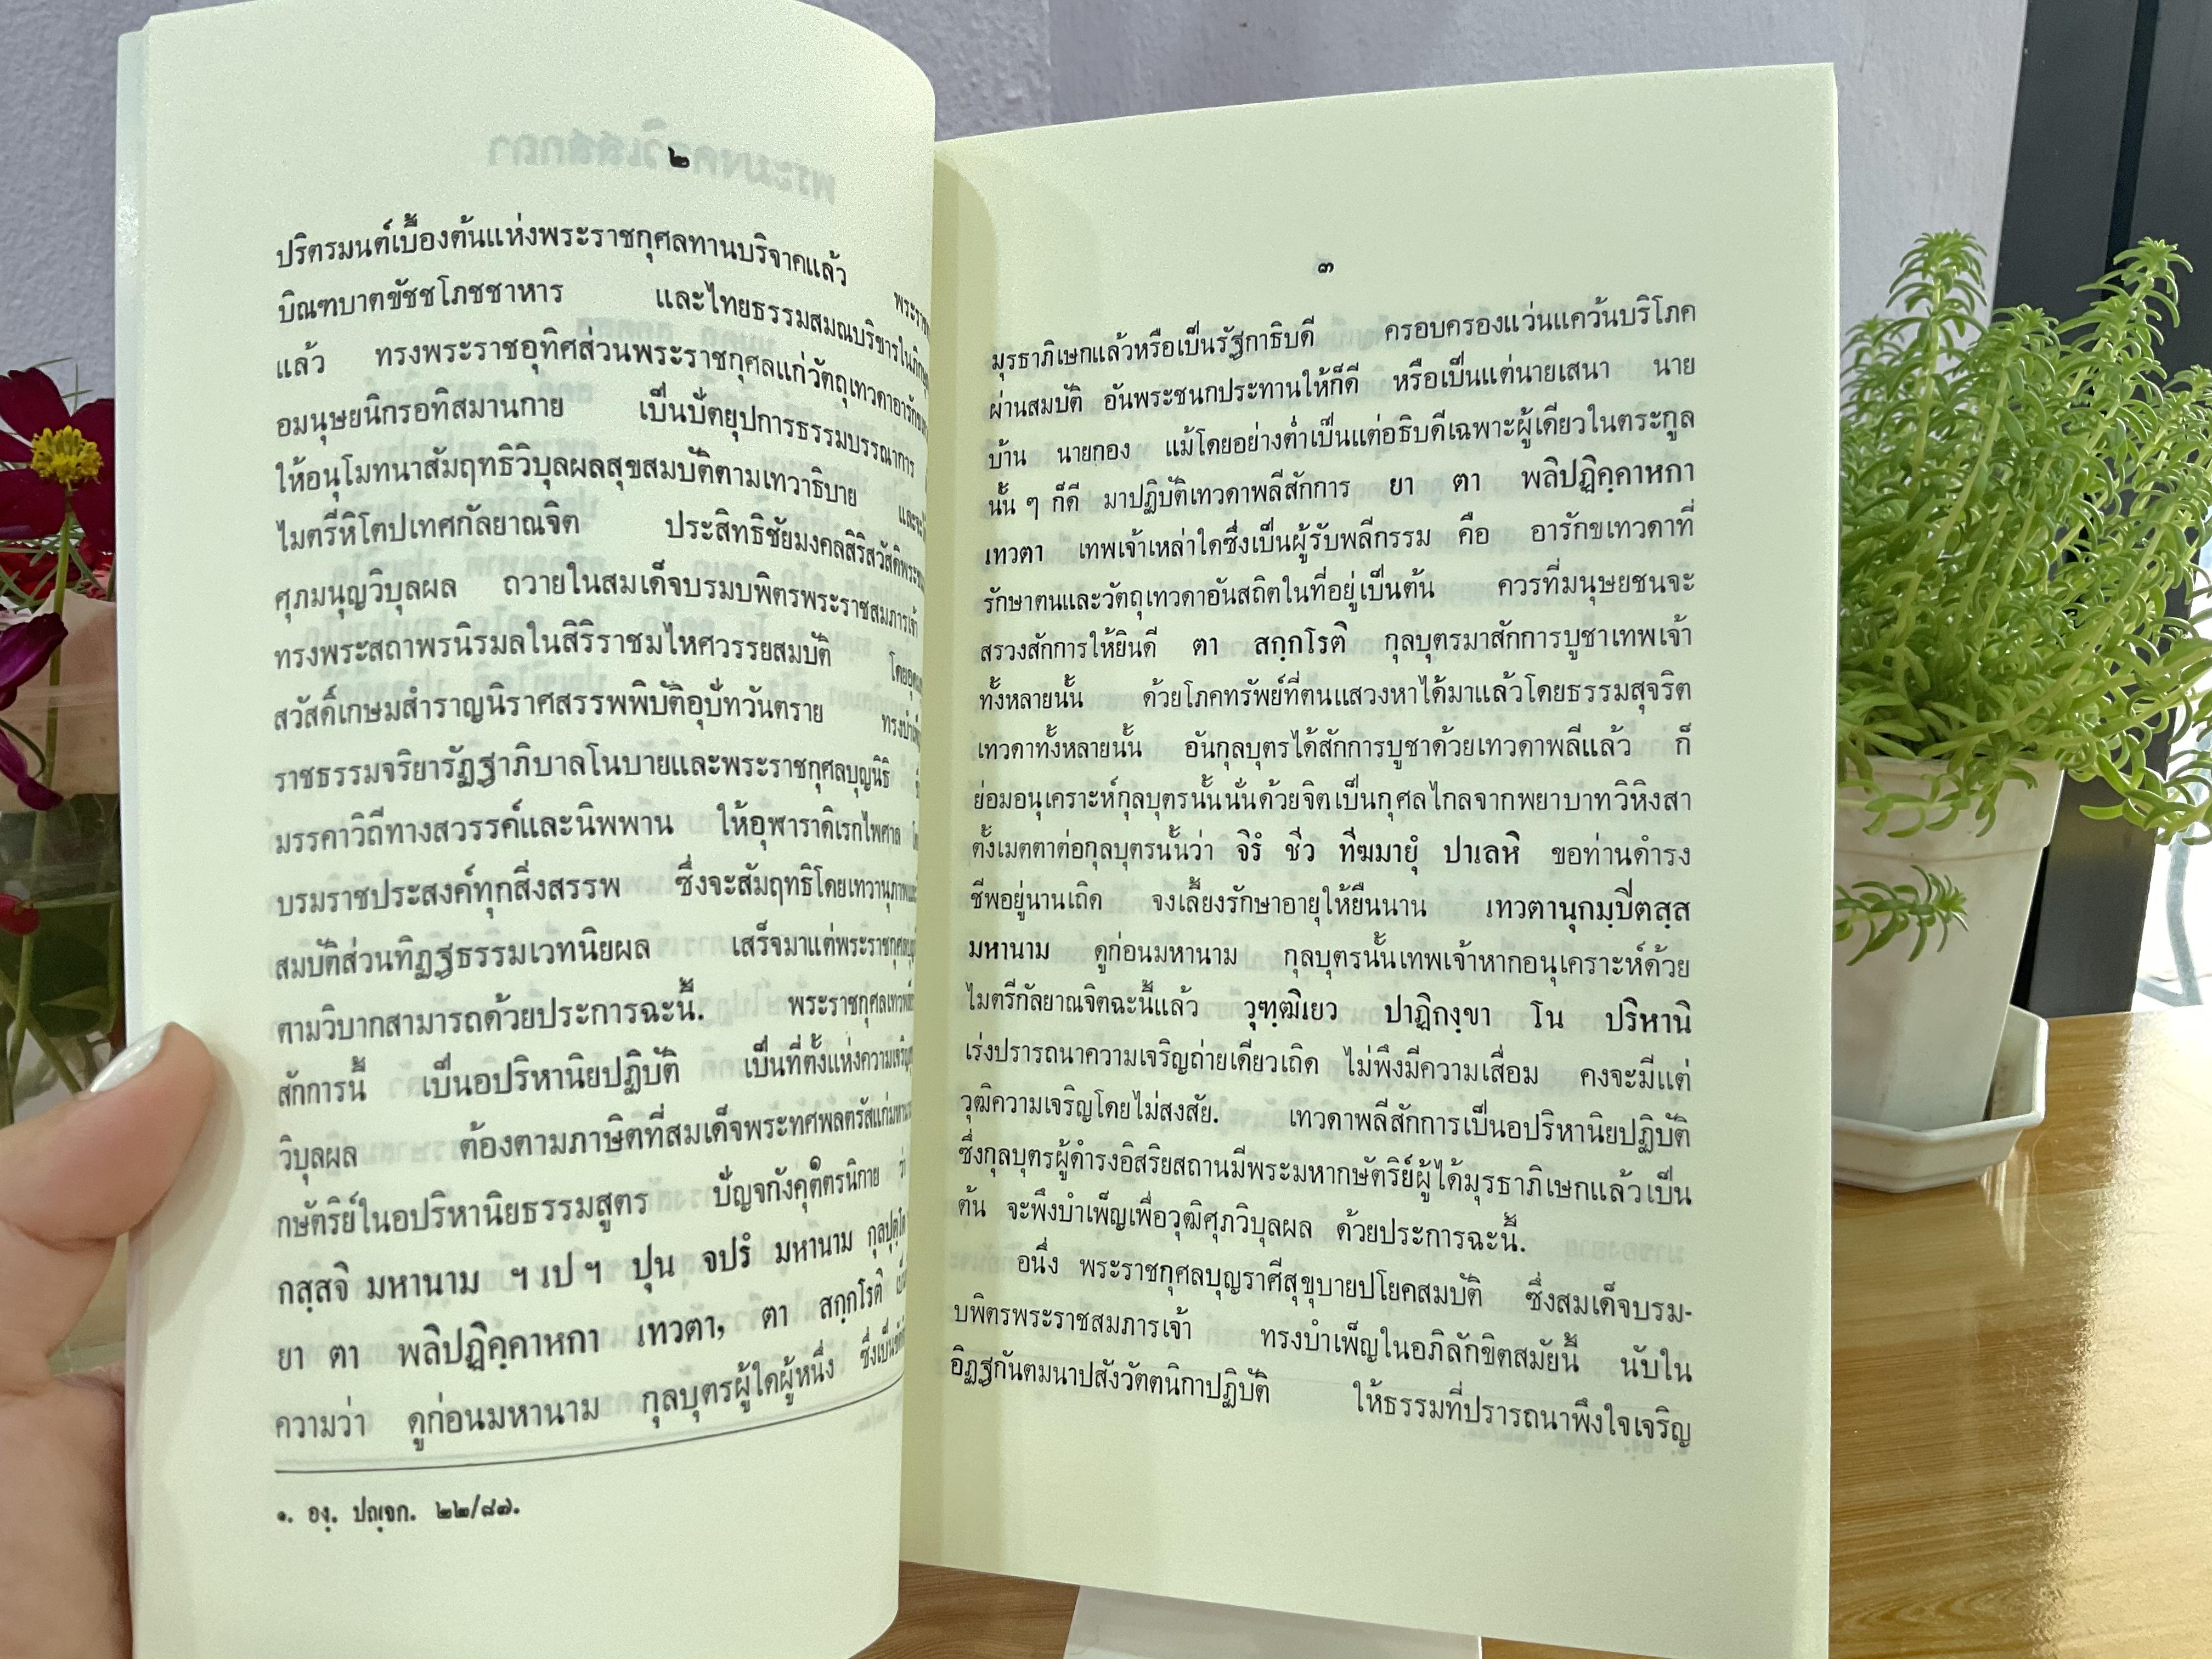 ๒
ปริตรมนต์เบื้องต้นแห่งพระราชกุศลทานบริจาคแล้ว
บิณฑบาตขัชชโภชชาหาร และไทยธรรมสมณบริขารในภิกษุ
แล้ว ทรงพระราชอุทิศส่วนพระราชกุศลแก่วัตถุเทวดาอารักข
อมนุษยนิกรอทิสมานกาย เป็นปัตยุปการธรรมบรรณาการ
ให้อนุโมทนาสัมฤทธิวิบุลผลสุขสมบัติตามเทวาธิบาย
ไมตรีหิโตปเทศกัลยาณจิต ประสิทธิชัยมงคลสิริสวัสดิ
ศุภมนุญวิบุลผล ถวายในสมเด็จบรมบพิตรพระราชสมภารเจ้า
ทรงพระสถาพรนิรมลในสิริราชมไหศวรรยสมบัติ
สวัสดิ์เกษมสำราญนิราศสรรพพิบัติอุปัทวันตราย
ราชธรรมจริยารัฏฐาภิบาลโนบายและพระราชกุศลบุญนิธิ
มรรคาวิถีทางสวรรค์และนิพพาน ให้อุฬาราดิเรกไพศาล
บรมราชประสงค์ทุกสิ่งสรรพ ซึ่งจะสัมฤทธิโดยเทวานุภาพ
สมบัติส่วนทิฏฐธรรมเวทนิยผล เสร็จมาแต่พระราชกุศล
ตามวิบากสามารถด้วยประการฉะนี้. พระราชกุศลเทวพลี
สักการนี้ เป็นอปริหานิยปฏิบัติ เป็นที่ตั้งแห่งความเจริญ
วิบุลผล ต้องตามภาษิตที่สมเด็จพระทศพลตรัสแก่
กษัตริย์ในอปริหานิยธรรมสูตร ปัญจกังคุตตรนิกาย๑ ว่า
กสฺสจิ มหานาม ฯ เป ฯ ปุน จปรํ มหานาม กุลปุตฺโต
ยา ตา พลิปฏิคฺคาหกา เทวตา, ตา สกฺกโรติ
ความว่า ดูก่อนมหานาม กุลบุตรผู้ใดผู้หนึ่ง ซึ่งเป็น
๑. องฺ. ปญฺจก. ๒๒/๘๗.
๓
มุรธาภิเษกแล้วหรือเป็นรัฐกาธิบดี ครอบครองแว่นแคว้นบริโภค
ผ่านสมบัติ อันพระชนกประทานให้ก็ดี หรือเป็นแต่นายเสนา นาย
บ้าน นายกอง แม้โดยอย่างต่ำเป็นแต่อธิบดีเฉพาะผู้เดียวในตระกูล
นั้น ๆ ก็ดี มาปฏิบัติเทวดาพลีสักการ ยา ตา พลิปฏิคฺคาหกา
เทวตา เทพเจ้าเหล่าใดซึ่งเป็นผู้รับพลีกรรม คือ อารักขเทวดาที่
รักษาตนและวัตถุเทวดาอันสถิตในที่อยู่เป็นต้น ควรที่มนุษยชนจะ
สรวงสักการให้ยินดี ตา สกฺกโรติ กุลบุตรมาสักการบูชาเทพเจ้า
ทั้งหลายนั้น ด้วยโภคทรัพย์ที่ตนแสวงหาได้มาแล้วโดยธรรมสุจริต
เทวดาทั้งหลายนั้น อันกุลบุตรได้สักการบูชาด้วยเทวดาพลีแล้ว ก็
ย่อมอนุเคราะห์กุลบุตรนั้นนั่นด้วยจิตเป็นกุศลไกลจากพยาบาทวิหิงสา
ตั้งเมตตาต่อกุลบุตรนั้นว่า จิรํ ชีว ทีฆมายุํ ปาเลหิ ขอท่านดำรง
ชีพอยู่นานเถิด จงเลี้ยงรักษาอายุให้ยืนนาน เทวตานุกมฺปิตสฺส
มหานาม ดูก่อนมหานาม กุลบุตรนั้นเทพเจ้าหากอนุเคราะห์ด้วย
ไมตรีกัลยาณจิตฉะนี้แล้ว วุฑฺฒิเยว ปาฏิกงฺขา โน ปริหานิ
เร่งปรารถนาความเจริญถ่ายเดียวเถิด ไม่พึงมีความเสื่อม คงจะมีแต่
วุฒิความเจริญโดยไม่สงสัย. เทวดาพลีสักการเป็นอปริหานิยปฏิบัติ
ซึ่งกุลบุตรผู้ดำรงอิสริยสถานมีพระมหากษัตริย์ผู้ได้มุรธาภิเษกแล้วเป็น
ต้น จะพึงบำเพ็ญเพื่อวุฒิศุภวิบุลผล ด้วยประการฉะนี้.
อนึ่ง พระราชกุศลบุญราศีสุขุบายปโยคสมบัติ ซึ่งสมเด็จบรม-
บพิตรพระราชสมภารเจ้า ทรงบำเพ็ญในอภิลักขิตสมัยนี้ นับใน
อิฏฐกันตมนาปสังวัตตนิกาปฏิบัติ ให้ธรรมที่ปรารถนาพึงใจเจริญ